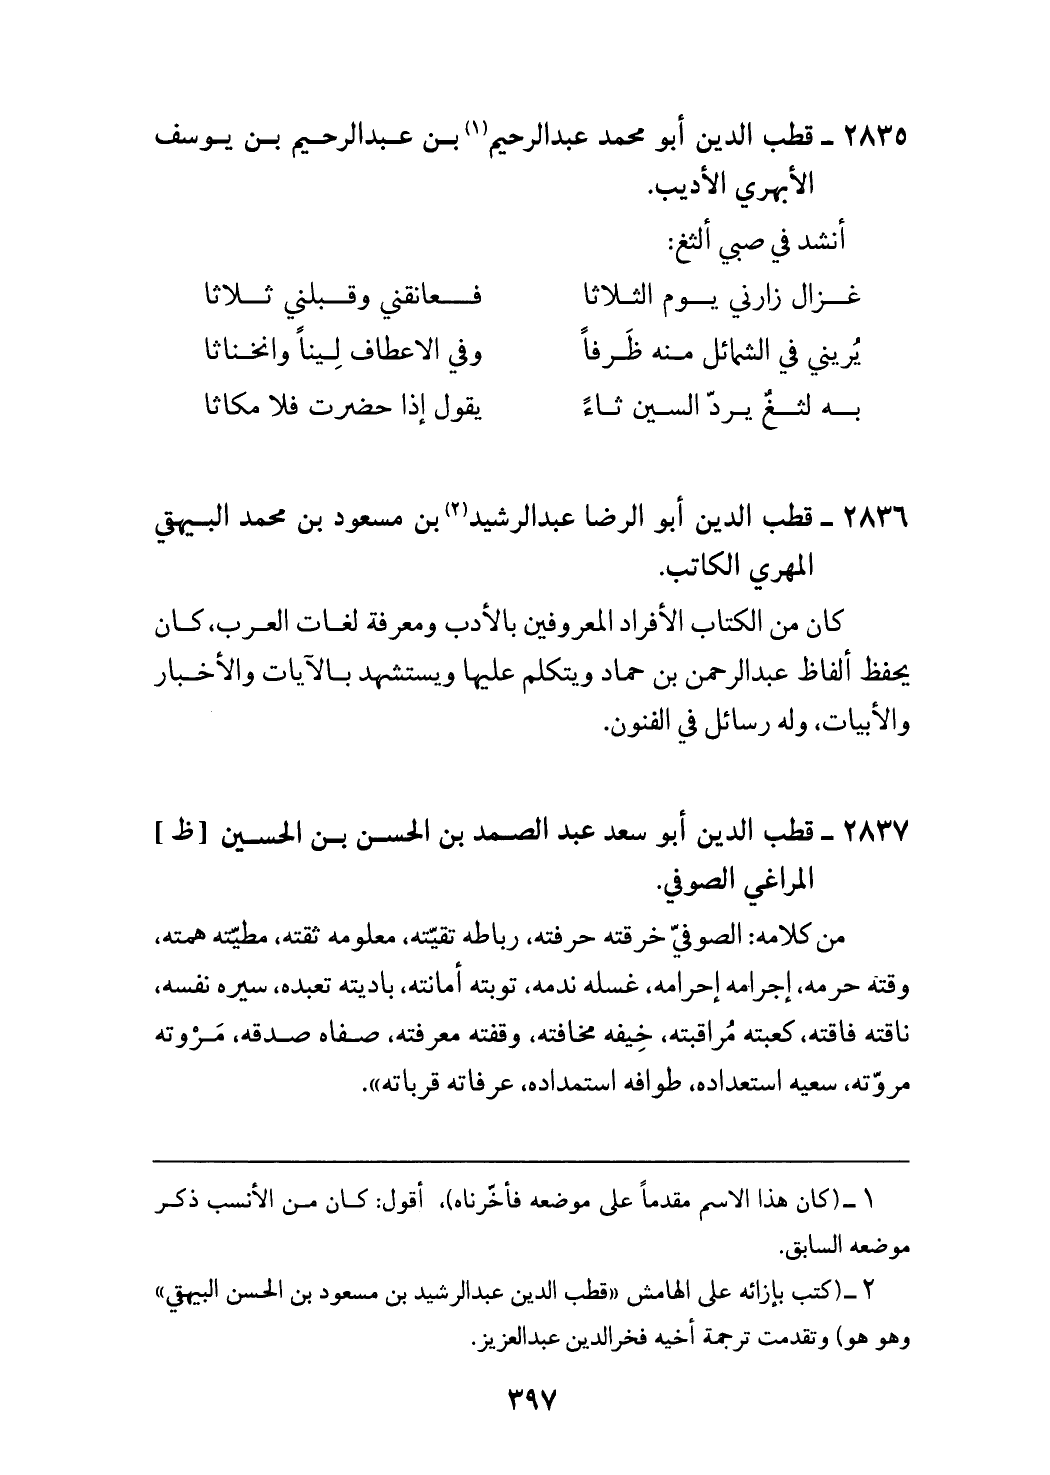 ٢٨٣٥ ـ قطب الدين أبو محمد عبدالرحيم(١) بن عبدالرحيم بن يوسف
الأبهري الأديب.
أنشد في صبي ألثغ:
غزال زارني يوم الثلاثا فعانقني وقبلني ثلاثا
يُريني في الشمائل منه ظَرفاً وفي الاعطاف لِيناً وانخناثا
به لثغٌ يردّ السين ثاءً يقول إذا حضرت فلا مكاثا
٢٨٣٦ ـ قطب الدين أبو الرضا عبدالرشيد(٢) بن مسعود بن محمد البيهقي
المهري الكاتب.
كان من الكتاب الأفراد المعروفين بالأدب ومعرفة لغات العرب، كان
يحفظ ألفاظ عبدالرحمن بن حماد ويتكلم عليها ويستشهد بالآيات والأخبار
والأبيات، وله رسائل في الفنون.
٢٨٣٧ ـ قطب الدين أبو سعد عبد الصمد بن الحسن بن الحسين [ظ]
المراغي الصوفي.
من كلامه: الصوفيّ خرقته حرفته، رباطه تقيّته، معلومه ثقته، مطيّته همته،
وقته حرمه، إجرامه إحرامه، غسله ندمه، توبته أمانته، باديته تعبده، سيره نفسه،
ناقته فاقته، كعبته مُراقبته، خِيفه مخافته، وقفته معرفته، صفاه صدقه، مَرْوته
مروّته، سعيه استعداده، طوافه استمداده، عرفاته قرباته».
١ ـ (كان هذا الاسم مقدماً على موضعه فأخّرناه)، أقول: كان من الأنسب ذكر
موضعه السابق.
٢ ـ (كتب بإزائه على الهامش «قطب الدين عبدالرشيد بن مسعود بن الحسن البيهقي»
وهو هو) وتقدمت ترجمة أخيه فخرالدين عبدالعزيز.
٣٩٧